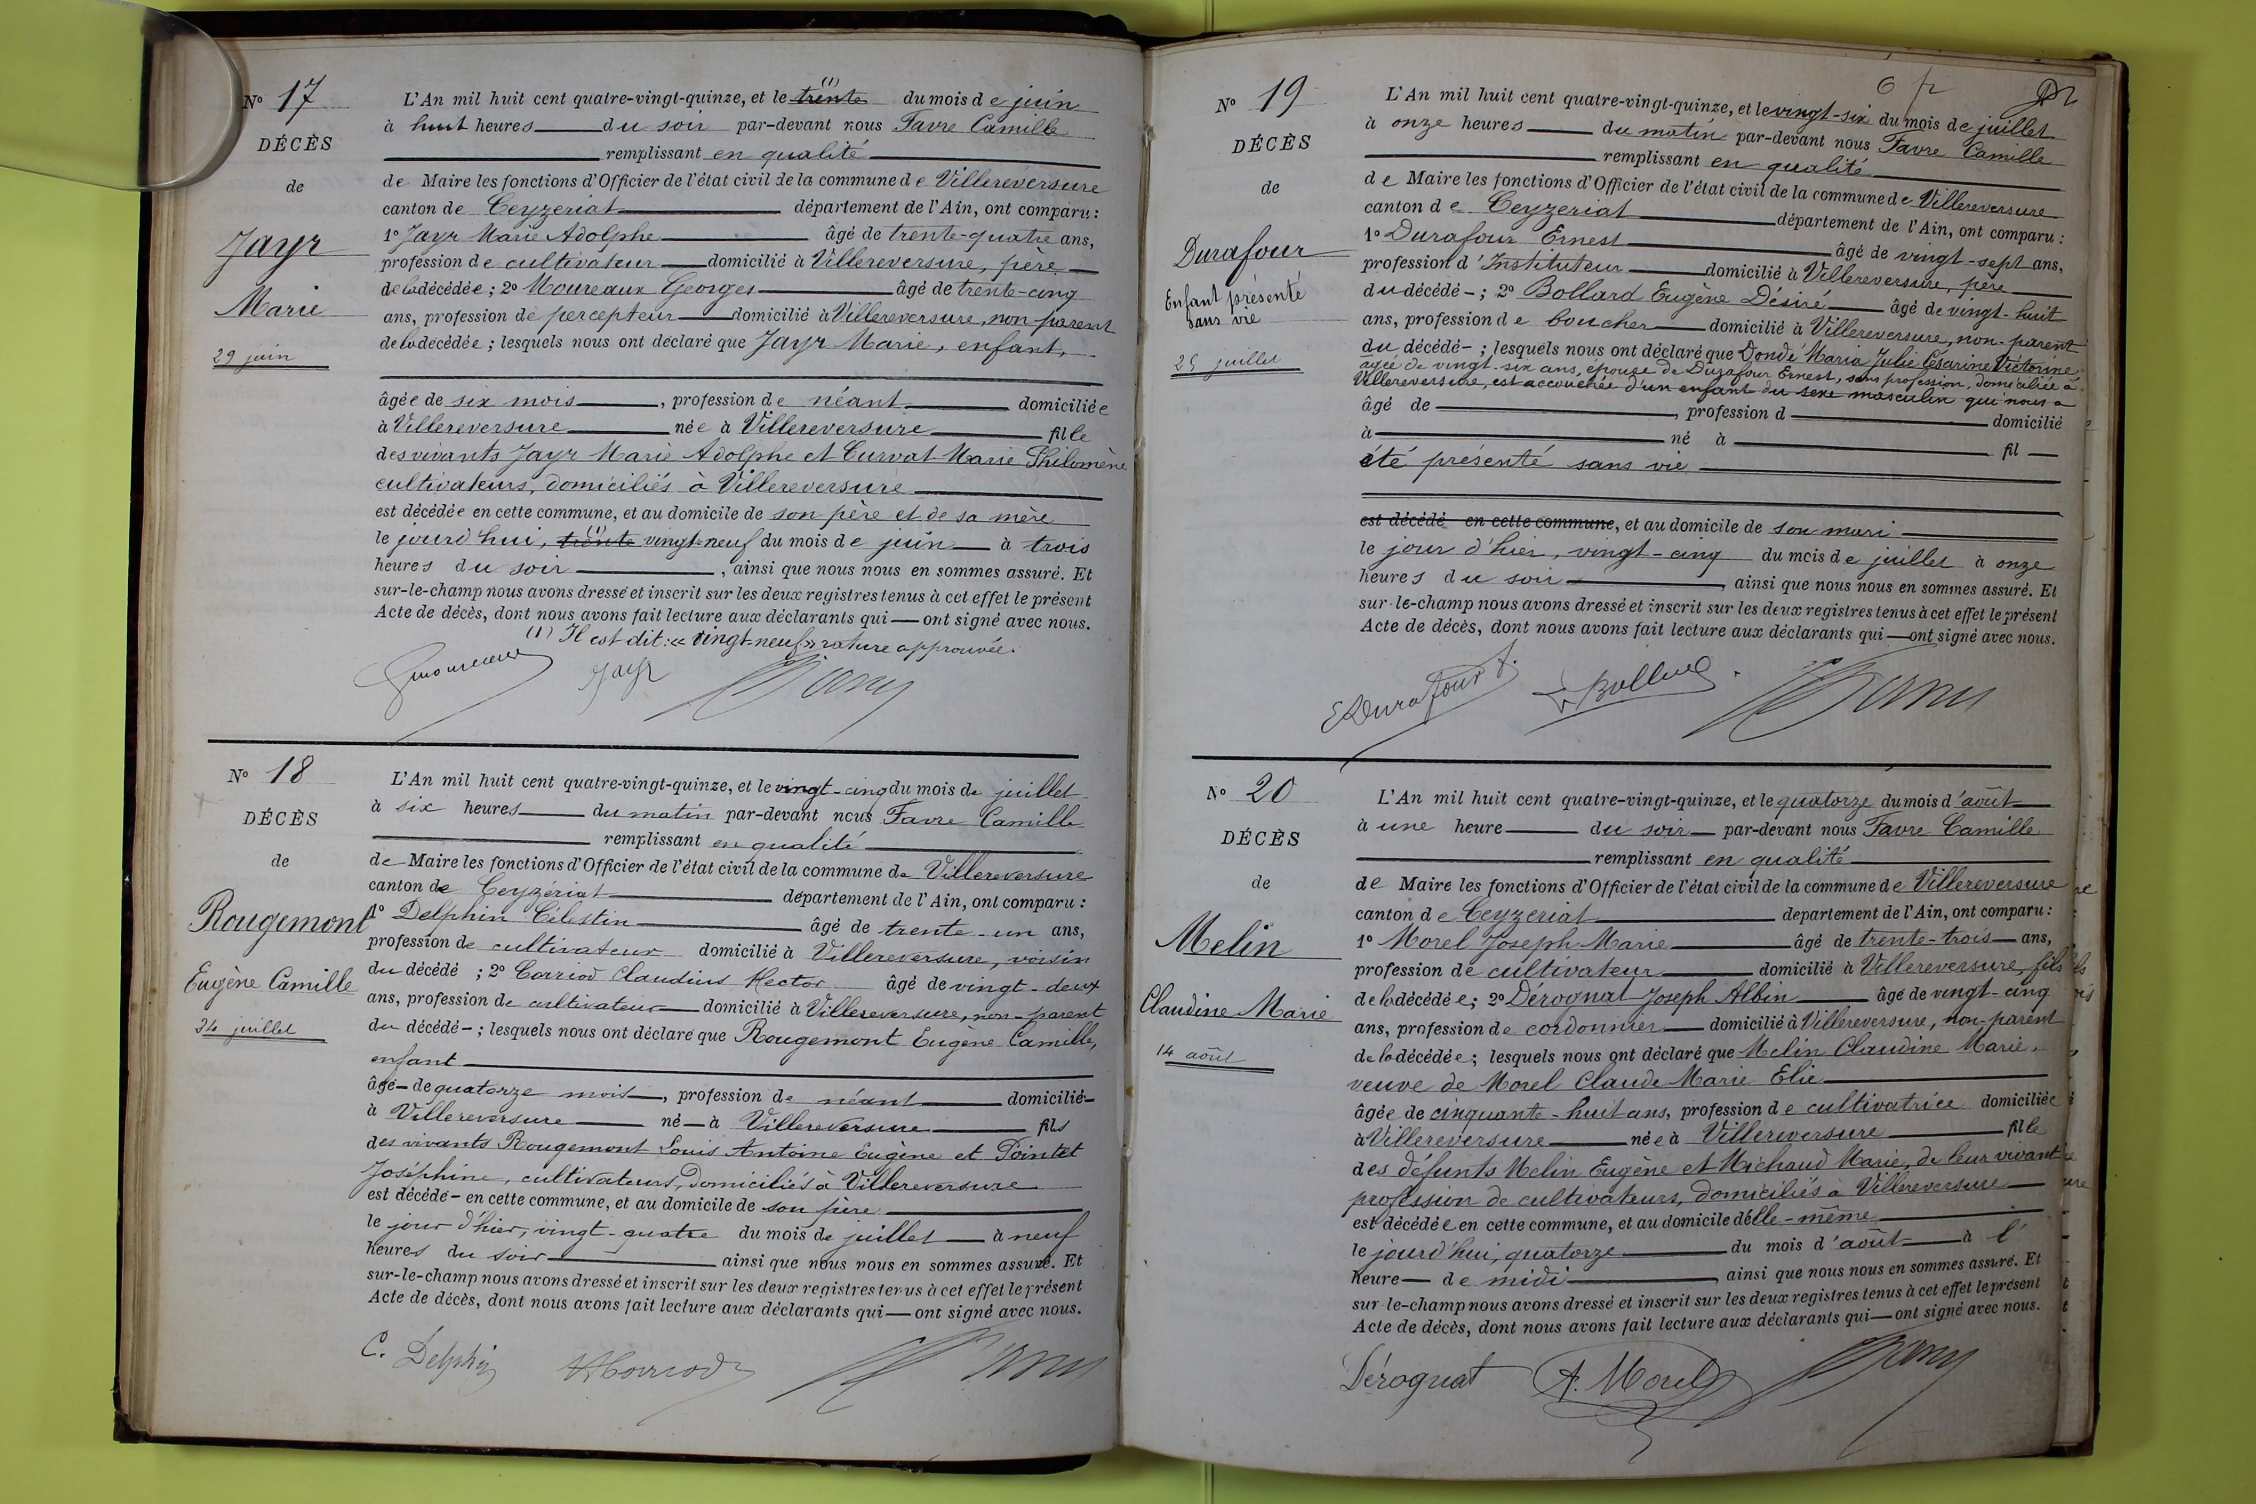 N° 17
DÉCÈS
de
Jayr
Marie
29 juin
L'An mil huit cent quatre-vingt-quinze, et le trente (1) du mois de juin
à huit heures du soir par-devant nous Favre Camille
remplissant en qualité
de Maire les fonctions d'Officier de l'état civil de la commune de Villereversure
canton de Ceyzeriat département de l'Ain, ont comparu :
1° Jayr Marie Adolphe âgé de trente-quatre ans,
profession de cultivateur domicilié à Villereversure, père
de la décédée ; 2° Moureaux Georges âgé de trente-cinq
ans, profession de percepteur domicilié à Villereversure, non-parent
de la décédée ; lesquels nous ont déclaré que Jayr Marie, enfant,
âgée de six mois, profession de néant domiciliée
à Villereversure née à Villereversure fille
des vivants Jayr Marie Adolphe et Curvat Marie Philomène
cultivateurs, domiciliés à Villereversure
est décédée en cette commune, et au domicile de son père et de sa mère
le jourd'hui, trente (1) vingt-neuf du mois de juin à trois
heures du soir, ainsi que nous nous en sommes assuré. Et
sur-le-champ nous avons dressé et inscrit sur les deux registres tenus à cet effet le présent
Acte de décès, dont nous avons fait lecture aux déclarants qui — ont signé avec nous.
(1) Il est dit : « vingt-neuf » rature approuvée.
Jayr
N° 18
DÉCÈS
de
Rougemont
Eugène Camille
24 juillet
L'An mil huit cent quatre-vingt-quinze, et le vingt-cinq du mois de juillet
à six heures du matin par-devant nous Favre Camille
remplissant en qualité
de Maire les fonctions d'Officier de l'état civil de la commune de Villereversure
canton de Ceyzériat département de l'Ain, ont comparu :
1° Delphin Célestin âgé de trente-un ans,
profession de cultivateur domicilié à Villereversure, voisin
du décédé ; 2° Corriod Claudius Hector âgé de vingt-deux
ans, profession de cultivateur domicilié à Villereversure, non-parent
du décédé - ; lesquels nous ont déclaré que Rougemont Eugène Camille,
enfant
âgé - de quatorze mois, profession de néant domicilié -
à Villereversure né - à Villereversure fils
des vivants Rougemont Louis Antoine Eugène et Pointet
Joséphine, cultivateurs, domiciliés à Villereversure
est décédé - en cette commune, et au domicile de son père
le jour d'hier, vingt-quatre du mois de juillet à neuf
heures du soir ainsi que nous nous en sommes assuré. Et
sur-le-champ nous avons dressé et inscrit sur les deux registres tenus à cet effet le présent
Acte de décès, dont nous avons fait lecture aux déclarants qui — ont signé avec nous.
C. Delphin
H Corriod
N° 19
DÉCÈS
de
Durafour
Enfant présenté
sans vie
25 juillet
L'An mil huit cent quatre-vingt-quinze, et le vingt-six du mois de juillet
à onze heures du matin par-devant nous Favre Camille
remplissant en qualité
de Maire les fonctions d'Officier de l'état civil de la commune de Villereversure
canton de Ceyzeriat département de l'Ain, ont comparu :
1° Durafour Ernest âgé de vingt-sept ans,
profession d'Instituteur domicilié à Villereversure, père
du décédé - ; 2° Bollard Eugène Désiré âgé de vingt-huit
ans, profession de boucher domicilié à Villereversure, non-parent
du décédé - ; lesquels nous ont déclaré que Dondé Maria Julie Césarine Victorine
âgée de vingt-six ans, épouse de Durafour Ernest, sans profession, domiciliée à
Villereversure, est accouchée d'un enfant du sexe masculin qui nous a
âgé de , profession d domicilié
à né à fil
été présenté sans vie
est décédé en cette commune, et au domicile de son mari
le jour d'hier, vingt-cinq du mois de juillet à onze
heures du soir, ainsi que nous nous en sommes assuré. Et
sur-le-champ nous avons dressé et inscrit sur les deux registres tenus à cet effet le présent
Acte de décès, dont nous avons fait lecture aux déclarants qui — ont signé avec nous.
E Durafour
Bollard
N° 20
DÉCÈS
de
Melin
Claudine Marie
14 août
L'An mil huit cent quatre-vingt-quinze, et le quatorze du mois d'août
à une heure du soir par-devant nous Favre Camille
remplissant en qualité
de Maire les fonctions d'Officier de l'état civil de la commune de Villereversure
canton de Ceyzeriat département de l'Ain, ont comparu :
1° Morel Joseph-Marie âgé de trente-trois ans,
profession de cultivateur domicilié à Villereversure, fils
de la décédée ; 2° Dérognat Joseph Albin âgé de vingt-cinq
ans, profession de cordonnier domicilié à Villereversure, non-parent
de la décédée ; lesquels nous ont déclaré que Melin Claudine Marie,
veuve de Morel Claude Marie Elie
âgée de cinquante-huit ans, profession de cultivatrice domiciliée
à Villereversure née à Villereversure fille
des défunts Melin Eugène et Michaud Marie, de leur vivant
profession de cultivateurs, domiciliés à Villereversure
est décédée en cette commune, et au domicile d'elle-même
le jourd'hui, quatorze du mois d'août à l'
heure - de midi, ainsi que nous nous en sommes assuré. Et
sur-le-champ nous avons dressé et inscrit sur les deux registres tenus à cet effet le présent
Acte de décès, dont nous avons fait lecture aux déclarants qui — ont signé avec nous.
Dérognat
A. Morel